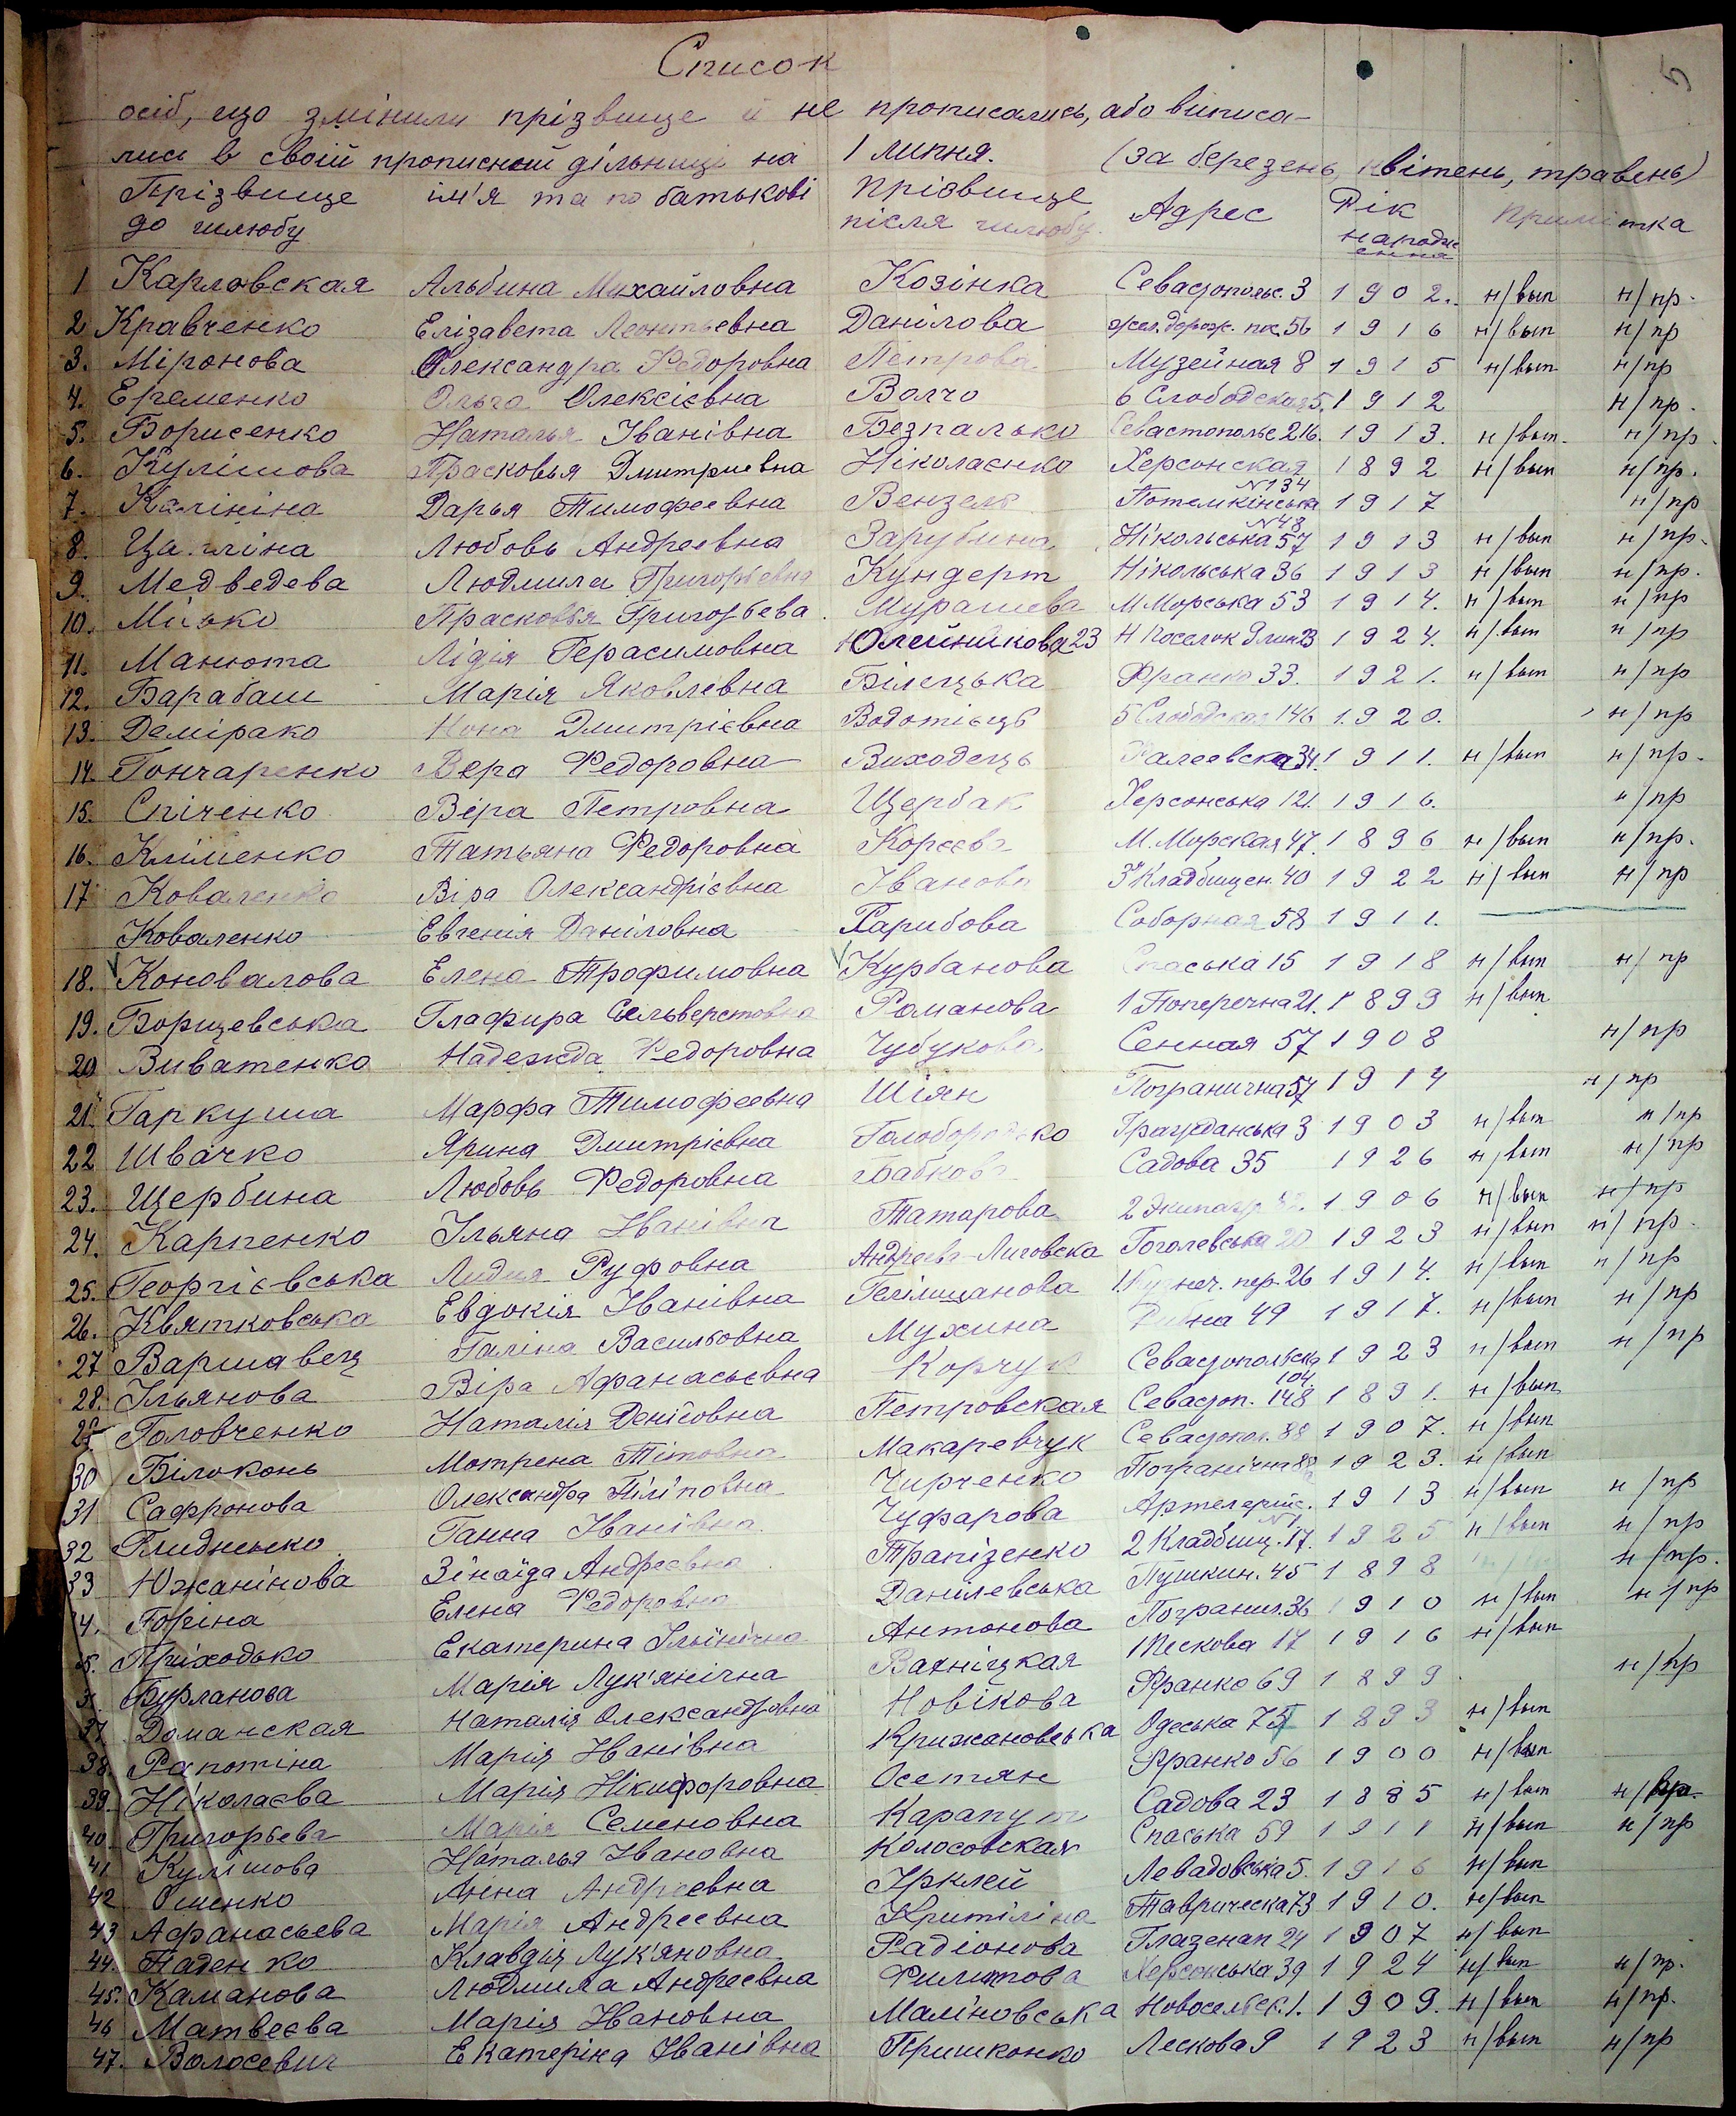 5
Список
осіб, що змінили прізвище й не прописались, або виписа-
лись в своій прописной дільниці на 1 липня. (за березень, квітень, травень)
Прізвище до шлюбу ім'я та по батькові Прізвище після шлюбу. Адрес Рік народження Примітка
1 Карловская Альбина Михайловна Козінка Севастопольс. 3 1902. н/вып н/пр.
2 Кравченко Елізавета Леонтьевна Данілова желдорож. пк. 56 1916 н/вып н/пр
3. Міронова Олександра Федоровна Петрова Музейная 8 1915 н/вып н/пр
4. Еременко Ольга Олексієвна Волчо 6 Слободская 5. 1912 н/пр.
5. Борисенко Наталья Іванівна Безпалько Севастопольс 216. 1913. н/вып. н/пр.
6. Кулішова Прасковья Дмитриевна Ніколаєнко Херсонская №134 1892 н/вып н/пр.
7. Калініна Дарья Тимофеевна Вензель Потемкінська №48 1917 н/пр
8. Любовь Андреевна Зарубина Нікольська 57 1913 н/вып н/пр.
9. Медведева Людмила Григорьевна Кундерт Нікольська 36 1913 н/вып н/пр.
10. Прасковья Григорьева Мурашева М Морська 53 1914. н/вып н/пр
11. Манюта Лідія Герасимовна Олейникова 23 Н Поселок 23 1924. н/вып н/пр
12. Барабаш Марія Яковлевна Білецька Франко 33. 1921. н/вып н/пр
13. Демірако Нона Дмитрієвна Водотієць 5 Слободская 146 1920. н/пр
14. Гончаренко Вера Федоровна Виходець Фалеевска 34. 1911. н/вып н/пр.
15. Спіченко Віра Петровна Щербак Херсонська 121. 1916. н/пр
16. Кліменко Татьяна Федоровна Корєєва М. Морская 47. 1896 н/вып н/пр.
17 Коваленко Віра Олександрієвна Іванова 3 Кладбищен. 40 1922 н/вып н/пр
Коваленко Евгенія Даніловна Гарибова Соборная 58 1911.
18. Коновалова Елена Трофимовна Курбанова Спаська 15 1918 н/вып н/пр
19. Борщевська Глафира Сельверстовна Романова 1 Поперечна 21. 1899 н/вып
20 Виватенко Надежда Федоровна Чубукова Сенная 57 1908 н/пр
21. Гаркуша Марфа Тимофеевна Шіян Погранична 57 1914 н/пр
22 Швачко Ярина Дмитрієвна Голобородько Гражданська 3 1903 н/вып н/пр
23. Щербина Любовь Федоровна Бабкова Садова 35 1926 н/вып н/пр
24. Карпенко Ільяна Іванівна Татарова 2 Экипаж 1906 н/вып н/пр
25. Георгієвська Лидия Руфовна Андреева-Лиговска Гоголевська 20 1923 н/вып н/пр.
26. Квятковська Евдокія Іванівна Гелімшанова Кузнеч. пер. 26 1914. н/вып н/пр
27 Варшавец Галіна Васильовна Мухина Рибна 49 1917. н/вып н/пр
28. Ільянова Віра Афанасьєвна Корчук Севастопольска 104. 1923 н/вып н/пр
29 Головченко Наталія Денісовна Петровская Севастоп. 148 1891. н/вып
30 Білоконь Мотрена Тітовна Макаревчук Севастопол. 88 1907. н/вып
31 Сафронова Олександра Піліповна Чирченко Погранічна 1923. н/вып
32 Глиднсько Ганна Іванівна Чуфарова Артелерийс. №1 1913 н/вып н/пр
33 Южанінова Зінаіда Андреєвна Трапізенко 2 Кладбищ. 17. 1925 н/вып н/пр
34. Горіна Елена Федоровна Данілевська Пушкин. 45 1898 н/пр.
35. Пріходько Екатерина Ільінічна Антонова Погранич. 36 1910 н/вып н/пр
36 Бурланова Марія Лук'янічна Вахніцкая 1 Пескова 17 1916 н/вып
37. Доманская Наталія Олександровна Новікова Франко 69 1899 н/пр
38. Рапотіна Марія Іванівна Крижановська Одеська 75 1893 н/вып
39. Ніколаєва Марія Нікифоровна Осетян Франко 56 1900 н/вып
40. Григорьева Марія Семеновна Карапут Садова 23 1885 н/вып н/пр.
41 Кулішова Наталья Івановна Колосовская Спаська 59 1911 н/вып н/пр
42 Оменко Анна Андреевна Ірклей Левадовська 5. 1916 н/вып
43 Афанасьева Марія Андреевна Крітіліна Таврическа 73 1910. н/вып
44. Наденко Клавдія Лук'яновна Радіонова Глазенап 24 1907 н/вып
45. Каманова Людмила Андреевна Филипова Херсонська 39 1924 н/вып н/пр.
46 Матвеєва Марія Івановна Маліновська Новосельск. 1. 1909. н/вып н/пр.
47. Волосевич Екатеріна Іванівна Пришконко Лескова 9 1923 н/вып н/пр